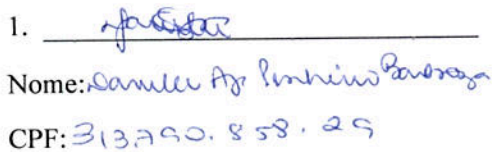 1.
Nome: Danilu Ap. Pinheiro Barboza
CPF: 313.790.858.29